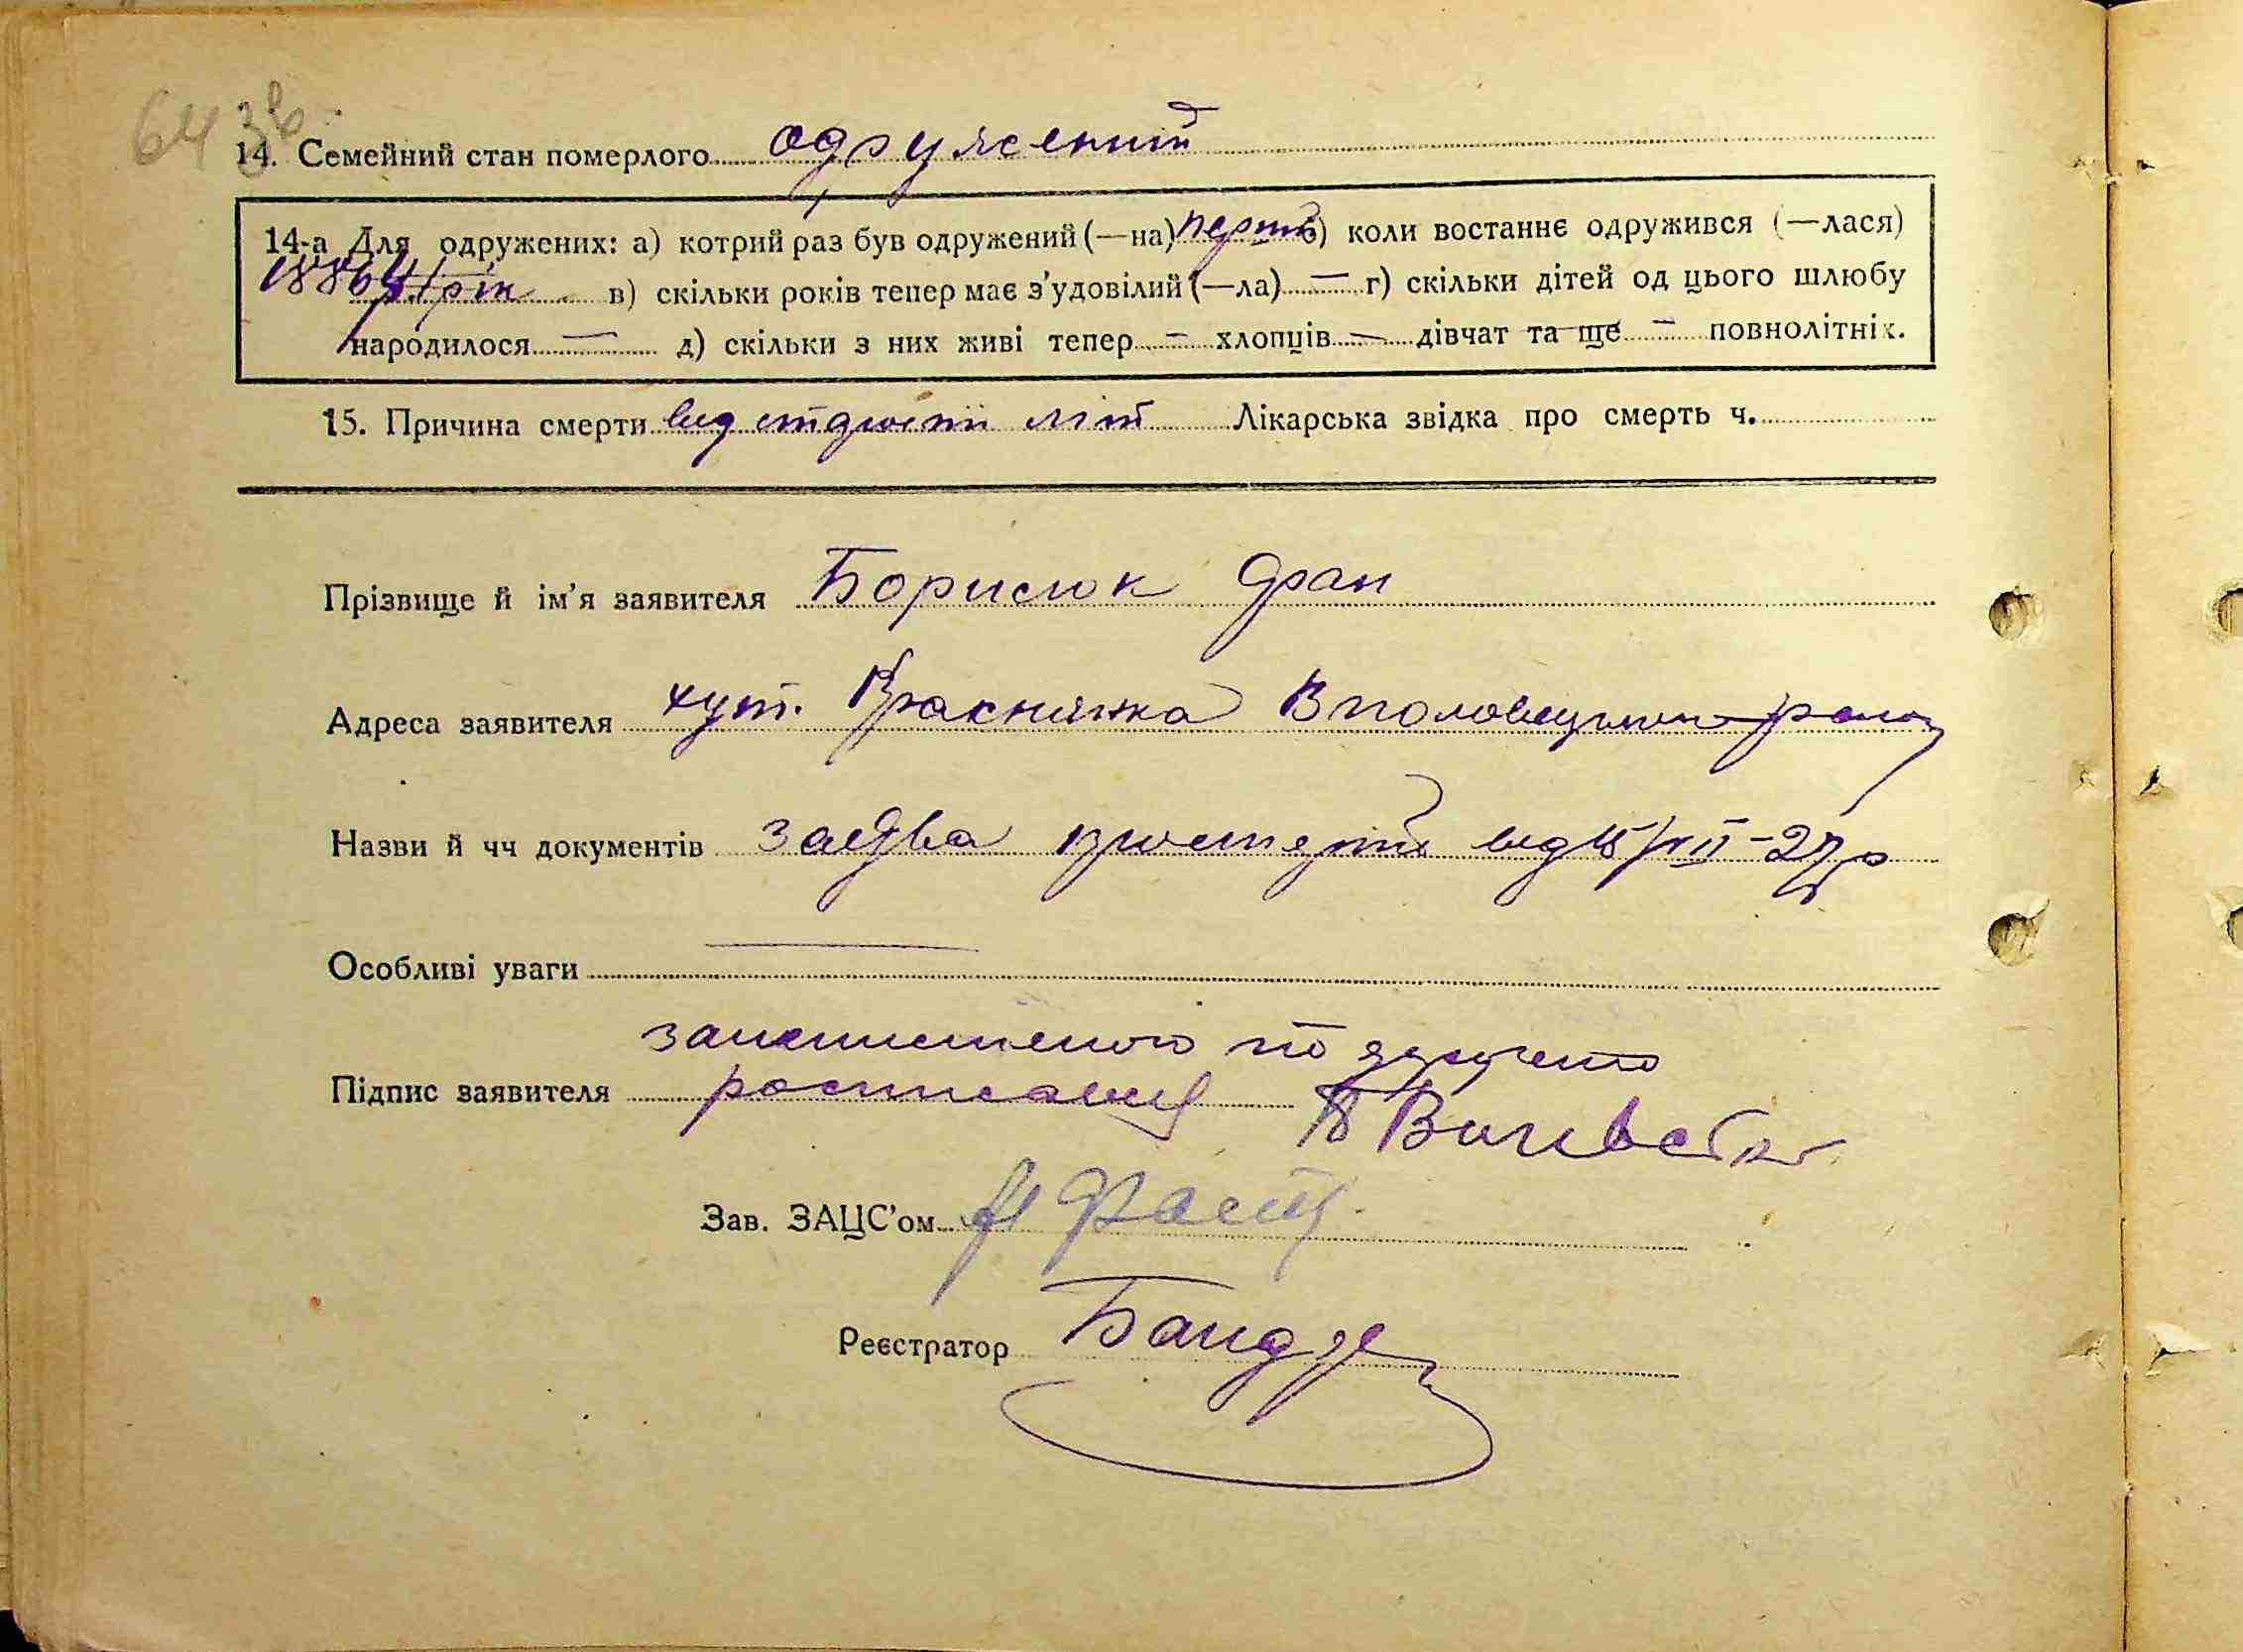 64 зв.
14. Семейний стан померлого одружений
14-а Для одружених: а) котрий раз був одружений (—на) перший б) коли востаннє одружився (—лася)
рік в) скільки років тепер має з'удовілий (—ла) — г) скільки дітей од цього шлюбу
народилося — д) скільки з них живі тепер — хлопців — дівчат та ще — повнолітніх.
15. Причина смерти від старости літ Лікарська звідка про смерть ч.
Прізвище й ім'я заявителя Борисюк Фран
Адреса заявителя хут. Краснянка В половецького району
Назви й чч документів заява від 15/VII-27р
Особливі уваги —
по доручению
Підпис заявителя росписався
Зав. ЗАЦС'ом
Реєстратор